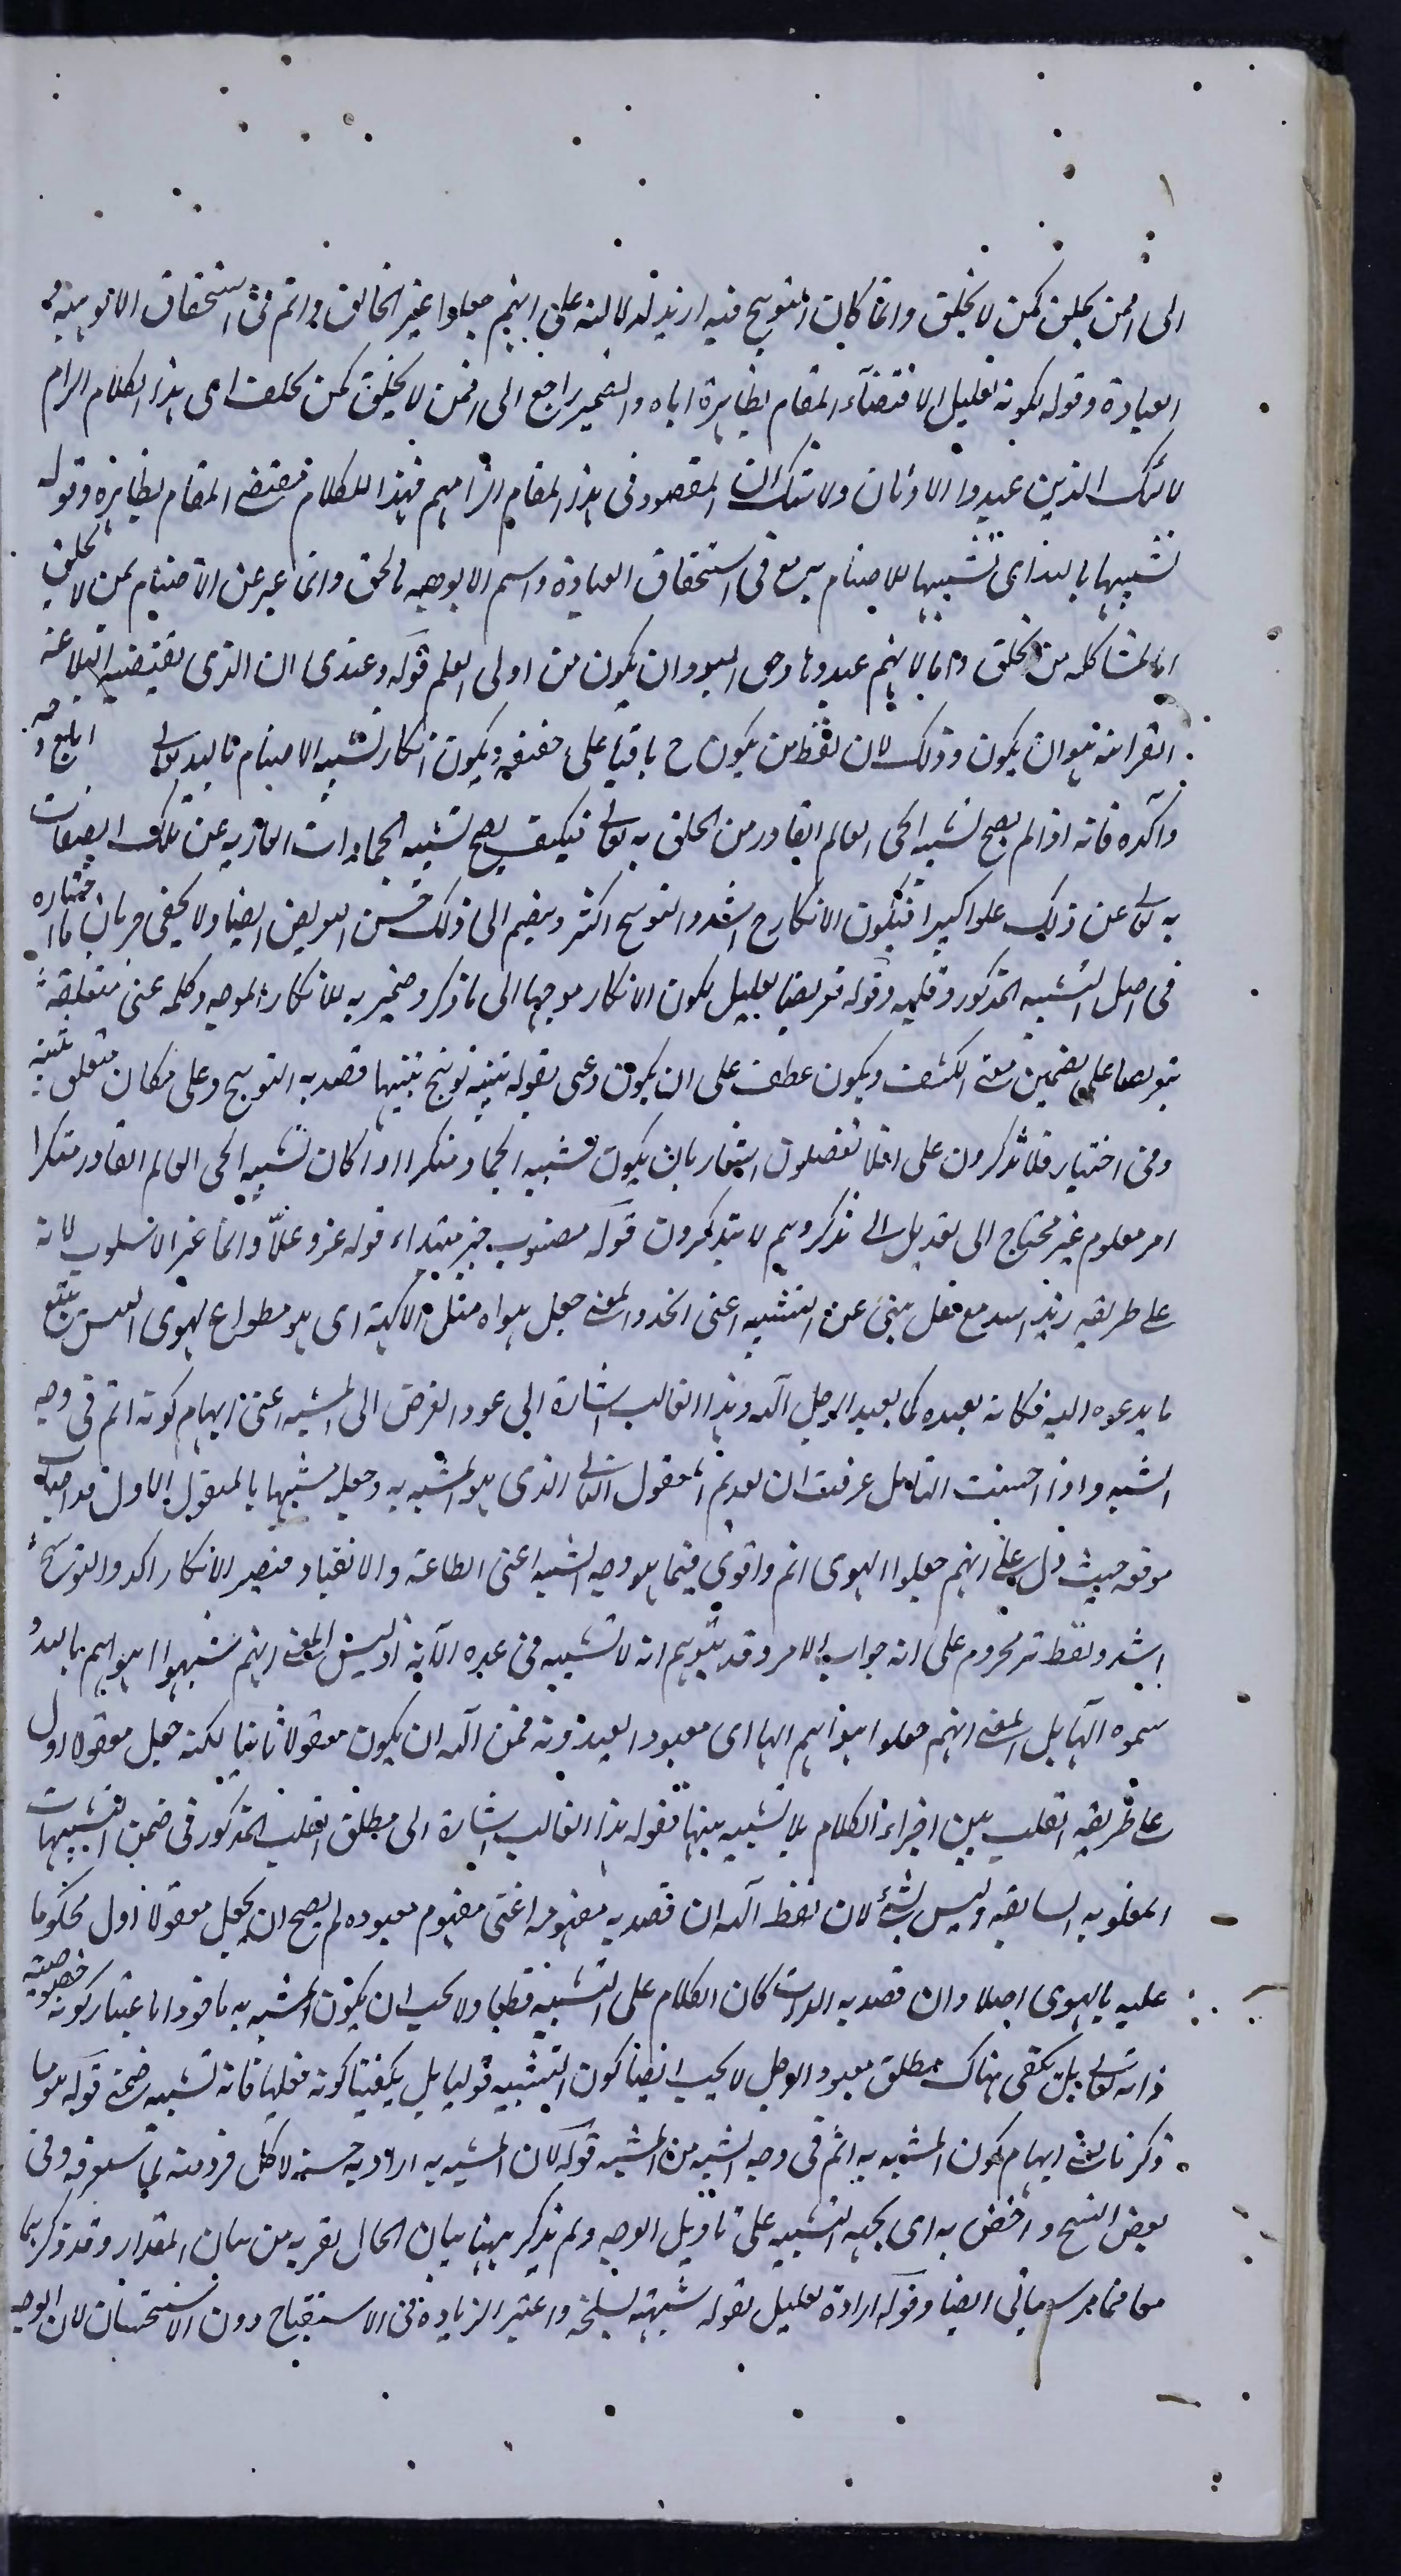 الى افمن يخلق كمن لا يخلق وانما كان التوبيخ فيه ازيد لدلالته على انهم جعلوا غير الخالق اتم فى استحقاق الالوهية و
العبادة وقوله لكونه تعليل لاقتضاء المقام بظاهره اياه والضمير راجع الى افمن لا يخلق كمن يخلق اى هذا الكلام الزام
للذين عبدوا الاوثان ولا شك ان المقصود فى هذا المقام الزامهم فهذا الكلام مقتضى المقام بظاهره وقوله
تشبيها بالله اى تشبيها للاصنام به تع فى استحقاق العبادة واسم الالوهية والحق وانما عبر عن الاصنام بمن لا يخلق
اما لمشاكلة من يخلق واما لانهم عبدوها وحق المعبود ان يكون من اولى العلم قوله وعندى ان الذى يقتضيه البلاغة
القرآنية هو ان يكون وذلك لان لفظ من يكون ح باقيا على حقيقته ويكون انكار تشبيه الاصنام بالله تعالى ابلغ وجه
وآكده فانه اذا لم يصح تشبيه الحى العالم القادر من الخلق به تعالى فكيف يصح تشبيه الجمادات العارية عن تلك الصفات
به تعالى عن ذلك علوا كبيرا فيكون الانكار ح اشد والتوبيخ اكثر وينضم الى ذلك حسن التعريض ايضا ولا يخفى جريان ما اختاره
فى اصل التشبيه المذكور وقلبه وقوله تعريضا تعليل لكون الانكار موجها الى ما ذكر وضمير به للانكار الموجه وكلمة عن متعلقة
بتعريضا على تضمين معنى الكشف ويكون عطف على ان يكون وعنى بقوله تنبيه توبيخ تنبيها قصد به التوبيخ وعلى مكان متعلق بتنبيه
وفى اختيار فلا تذكرون على افلا تعقلون اشعار بان يكون تشبيه الجماد منكرا اذا كان تشبيه الحى العالم القادر منكرا
امر معلوم غير محتاج الى تعقل بل الى تذكر وهم لا يتذكرون قوله مصبوب خبر مبتداء قوله عز وعلا وانما غير الاسلوب لانه
على طريقة زيد اسد مع فعل ينبئ عن التشبيه اعنى اتخذ والمعنى جعل هواه مثل الآلهة اى هو مطواع لهوى النفس يتبع
ما يدعوه اليه فكانه يعبده كما يعبد الرجل آلهه وهذا القالب اشارة الى عود الغرض الى المشبه اعنى ايهام كونه اتم فى وجه
الشبه واذا احسنت التامل عرفت ان تقديم المفعول الثانى الذى هو المشبه به وجعله مشبها بالمفعول الاول قد اصاب
موقعه حيث دل على انهم جعلوا الهوى اتم واقوى فيما هو وجه الشبه اعنى الطاعة والانقياد فيصير الانكار اكد والتوبيخ
اشد ولفظ تر مجزوم على انه جواب الامر وقد يتوهم انه لا تشبيه فى هذه الآية اذ ليس المعنى انهم شبهوا اهواءهم بالله و
سموه الها بل المعنى انهم جعلوا اهواءهم الها اى معبودا يعبدونه فحق آلهه ان يكون مفعولا ثانيا لكنه جعل مفعولا اول
على طريقة القلب بين اجزاء الكلام بلا تشبيه بينها فقوله هذا القالب اشارة الى مطلق القلب المذكور فى ضمن التشبيهات
المقلوبة السابقة وليس بشئ لان لفظ آلهه ان قصد به مفهومه اعنى مفهوم معبوده لم يصح ان يجعل مفعولا اول محكوما
عليه بالهوى اصلا وان قصد به الذات كان الكلام على التشبيه قطعا ولا يجب ان يكون المشبه به ماخوذا باعتبار كونه خصوصية
ذاته تعالى بل يكفى هناك مطلق معبود الرجل لا يجب ايضا كون التشبيه قوليا بل يكفينا كونه فعليا فانه تشبيه ضمنى قوله هو ما
ذكرنا يعنى ايهام كون المشبه به اتم فى وجه الشبه من المشبه قوله لان المشبه به اراد به جنسه لا كل فرد منه لما ستعرفه وفى
بعض النسخ واخص به اى بجهة التشبيه على تاويل الوجه ولم يذكر ههنا بيان الحال لقربه من بيان المقدار وقد ذكرهما
معا فيما مر وسياتى ايضا وقوله ارادة تعليل لقوله شبهته بسلحة واعتبر الزيادة فى الاستقباح دون الاستحسان لان الوجه